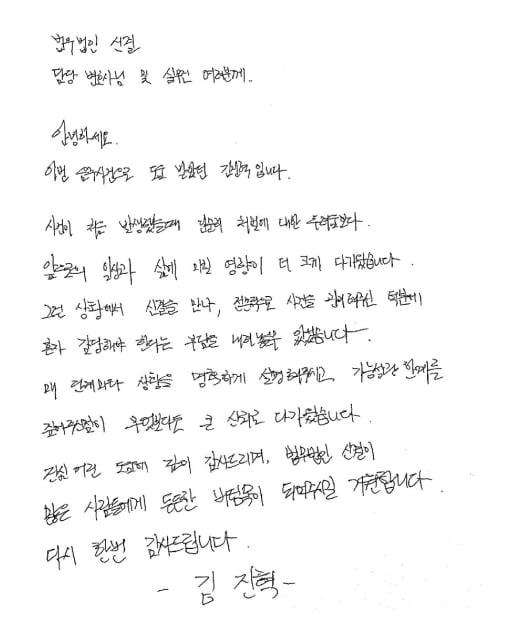 법무법인 신결
담당 변호사님 및 실무진 여러분께..
안녕하세요.
이번 음주사건으로 도움 받았던 김진혁입니다.
사건이 처음 발생했을때 단순히 처벌에 대한 두려움보다.
앞으로의 일상과 삶에 미칠 영향이 더 크게 다가왔습니다.
그런 상황에서 신결을 만나, 전문적으로 사건을 관리해주신 덕분에
혼자 감당해야 한다는 부담을 내려놓을 수 있었습니다.
매 단계마다 상황을 명확하게 설명해주시고, 가능성과 한계를
짚어주신점이 무엇보다도 큰 신뢰로 다가왔습니다.
진심 어린 도움에 깊이 감사드리며, 법무법인 신결이
많은 사람들에게 든든한 버팀목이 되어주시길 기원합니다.
다시 한번 감사드립니다.
- 김 진혁 -